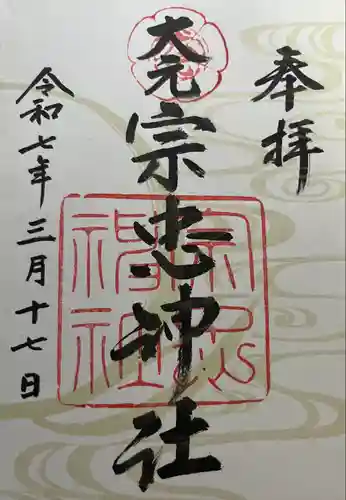 奉拝
大元
宗忠神社
令和七年三月十七日